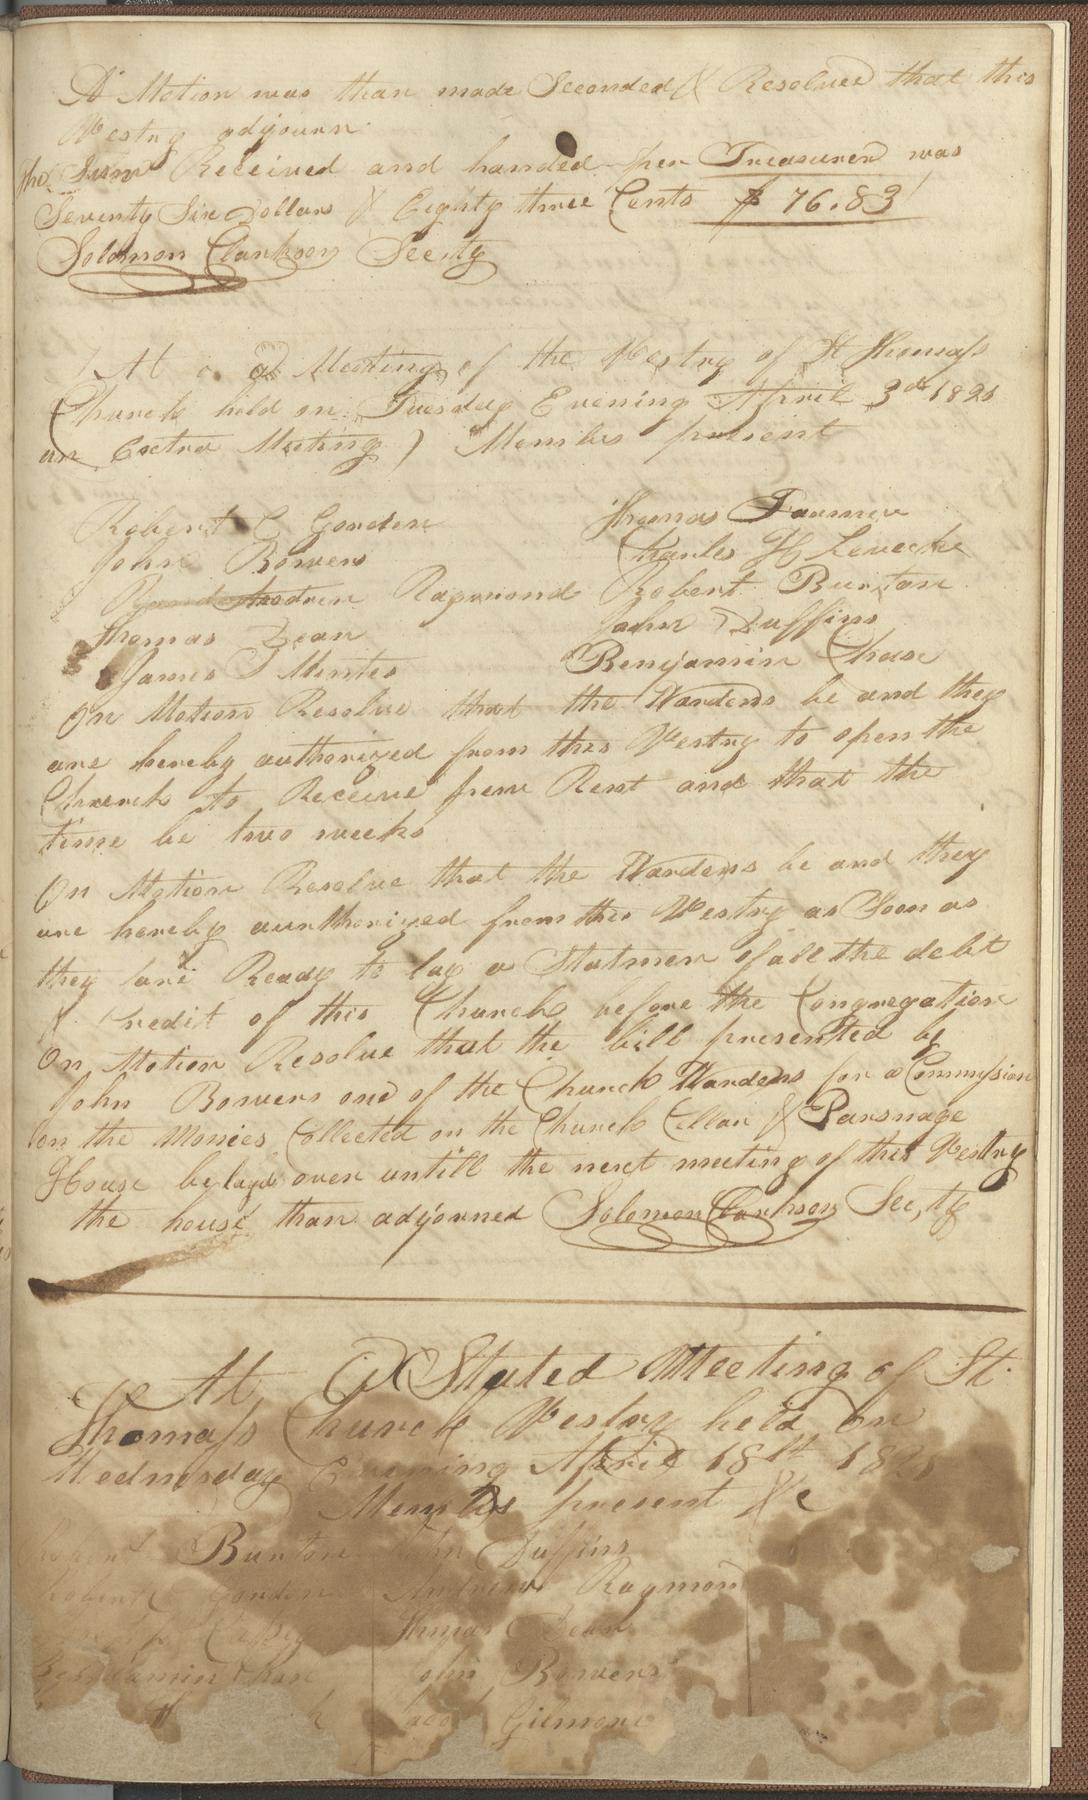 A Motion was than made Seconded & Resolved that this
Vestry adjourn
The Sum Received and handed per Treasurer was
Seventy Six Dollars & Eighty three Cents $ 76.83
Solomon Clarkson Secty
At a Meeting of the Vestry of St Thomass
Church held on Tuesday Evening April 3rd 1821
an Extra Meeting ) Members present
Robert C Gordon
Thomas Farmer
John Bowers
Charles H Leveck
Raymond
Robert Burton
Thomas Dean
John Duffins
James Mintes
Benjamin Chase
On Motion Resolve that the Wardens be and they
are hereby authorized from this Vestry to open the
Church to Receive pew Rent and that the
time be two weeks
On Motion Resolve that the Wardens be and they
are hereby aurthorized from this Vestry as Soon as
they are Ready to lay a Statmen of all the debt
& Credit of this Church before the Congregation
On Motion Resolve that the bill presented by
John Bowers one of the Church Wardens for a Commission
on the Monies Collected on the Church Cellar & Parsnage
House be layd over untill the next meeting of this Vestry
the house than adjorned Solomon Clarkson Sec,ty
At A Stated Meeting of St.
Thomass Church Vestry held on
Wednesday Evening April 18th 1821
Members present &c
Burton John Duffins
Robert Gordon Andrew Raymond
Thomas Dean
Benjamin Chase John Bowers
Jacob Gilmore